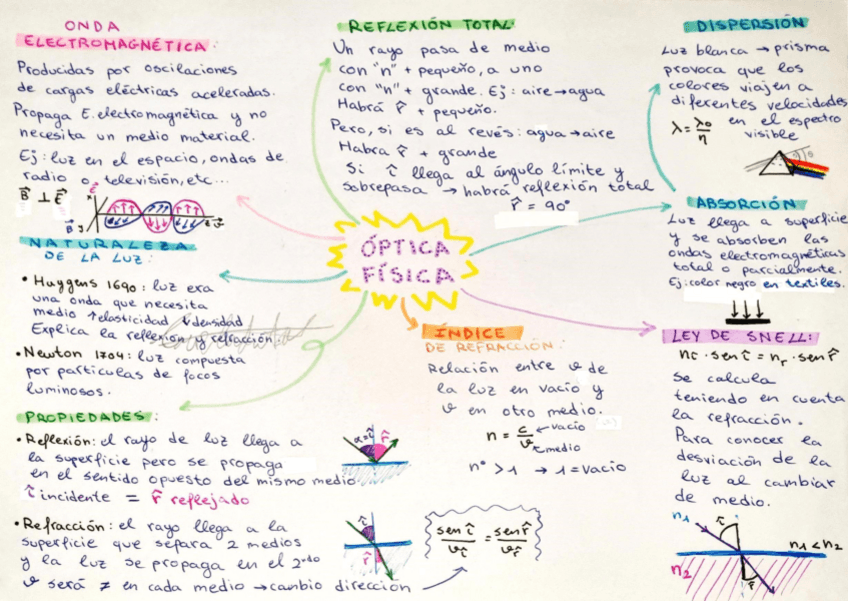 ONDA
ELECTROMAGNÉTICA:
Producidas por oscilaciones
de cargas eléctricas aceleradas.
Propaga E. electromagnética y no
necesita un medio material.
Ej: luz en el espacio, ondas de
radio o televisión, etc...
B ⊥ E
NATURALEZA
DE LA LUZ:
• Huygens 1690: luz era
una onda que necesita
medio ↑elasticidad ↓densidad
Explica la reflexión y refracción
• Newton 1704: luz compuesta
por partículas de focos
luminosos.
PROPIEDADES:
• Reflexión: el rayo de luz llega a
la superficie pero se propaga
en el sentido opuesto del mismo medio
î incidente = r̂ reflejado
• Refracción: el rayo llega a la
superficie que separa 2 medios
y la luz se propaga en el 2ⁿᵈᵒ
v será ≠ en cada medio → cambio dirección
sen î / vî = sen r̂ / vr̂
REFLEXIÓN TOTAL:
Un rayo pasa de medio
con "n" + pequeño, a uno
con "n" + grande. Ej: aire → agua
Habrá r̂ + pequeño.
Pero, si es al revés: agua → aire
Habra r̂ + grande
Si î llega al ángulo límite y
sobrepasa → habrá reflexión total
r̂ = 90º
ÓPTICA
FÍSICA
ÍNDICE
DE REFRACCIÓN:
Relación entre v de
la luz en vacío y
v en otro medio.
n = c/v ← vacío
medio
nº > 1 → 1 = vacío
DISPERSIÓN
Luz blanca → prisma
provoca que los
colores viajen a
diferentes velocidades
en el espectro
visible
λ = λo/η
ABSORCIÓN
Luz llega a superficie
y se absorben las
ondas electromagnéticas
total o parcialmente.
Ej: color negro en textiles.
LEY DE SNELL:
nî · sen î = nr · sen r̂
Se calcula
teniendo en cuenta
la refracción.
Para conocer la
desviación de la
luz al cambiar
de medio.
n1
î
n1 < n2
n2
r̂